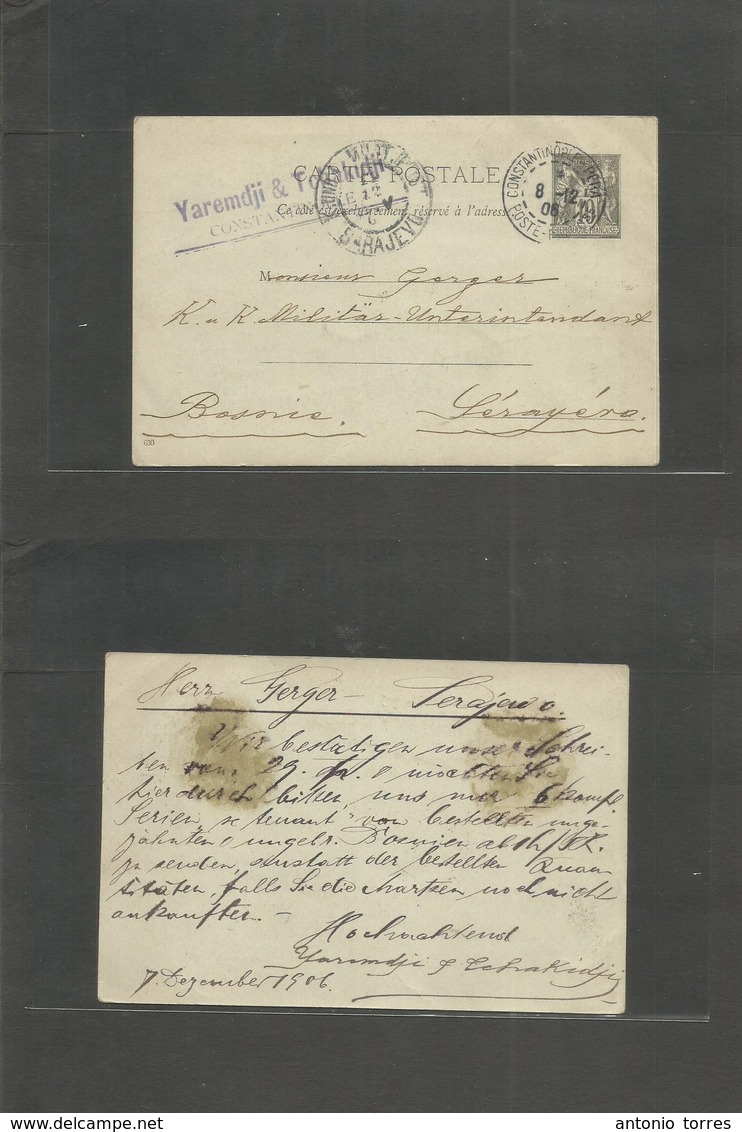 CARTE POSTALE
Ce côté est exclusivement réservé à l'adresse
Yaremdji &
CONSTANTIN
MILIT. POST
SARAJEVO
CONSTANTINOPLE PERA
8 12
06
POSTE
REPUBLIQUE FRANÇAISE
Monsieur Gerger
K. u. K. Militär-Unterintendant
Bosnie. Sérayévo.
630
Herr Gerger Serajewo.
Wir bestätigen unser Schrei-
ben vom 29. & möchten Sie
hierdurch bitten, uns nur 6 kompl.
Serien "se tenant" von bestellten unge-
zähnten & ungebr. Bosnien ab 1h/5K.
zu senden, anstatt der bestellten Quan
titäten, falls Sie die Marken noch nicht
ankauften. -
Hochachtend
Yaremdji & Tchakidji
7 Dezember 1906.
antonio torres